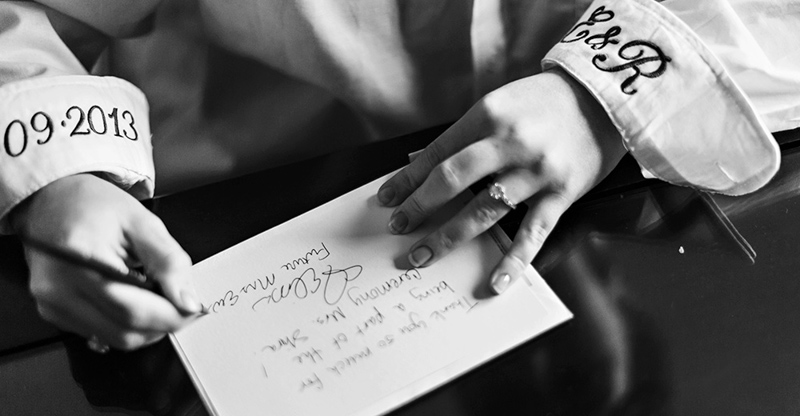 09·2013
E&R
Thank you so much for
being a part of the
ceremony Mrs.
Future Mrs